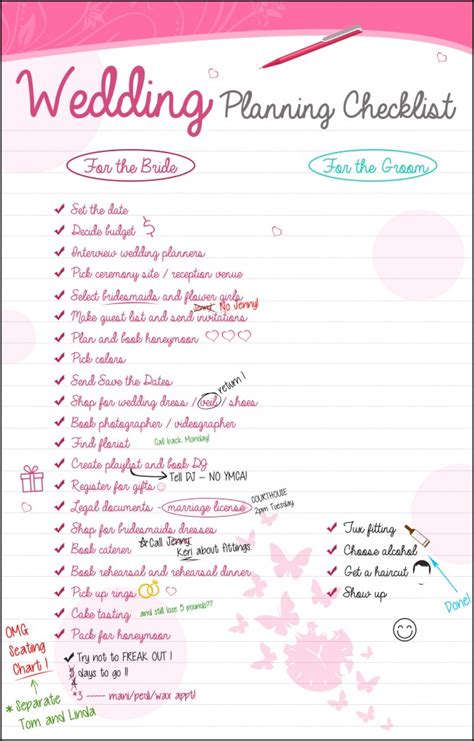 Wedding Planning Checklist
For the Bride
For the Groom
Set the date
Decide budget $
Interview wedding planners
Pick ceremony site / reception venue
Select bridesmaids and flower girls
No Jenny!
Make guest list and send invitations
Plan and book honeymoon
Pick colors
return !
Send Save the Dates
Shop for wedding dress / veil / shoes
Book photographer / videographer
Find florist Call back Monday!
Create playlist and book DJ
Tell DJ – NO YMCA!
Register for gifts
Legal documents - marriage license
COURTHOUSE
2pm Tuesday
Shop for bridesmaids dresses
Call Jenny
Book caterer Keri about fittings
Book rehearsal and rehearsal dinner
Pick up rings
Cake tasting and still lose 5 pounds??
Pack for honeymoon
Try not to FREAK OUT !
days to go !!
*3 ----- mani/pedi/wax appt!
OMG
Seating
Chart !
* Separate
Tom and Linda
Tux fitting
Choose alcohol
Get a haircut
Show up
Done!